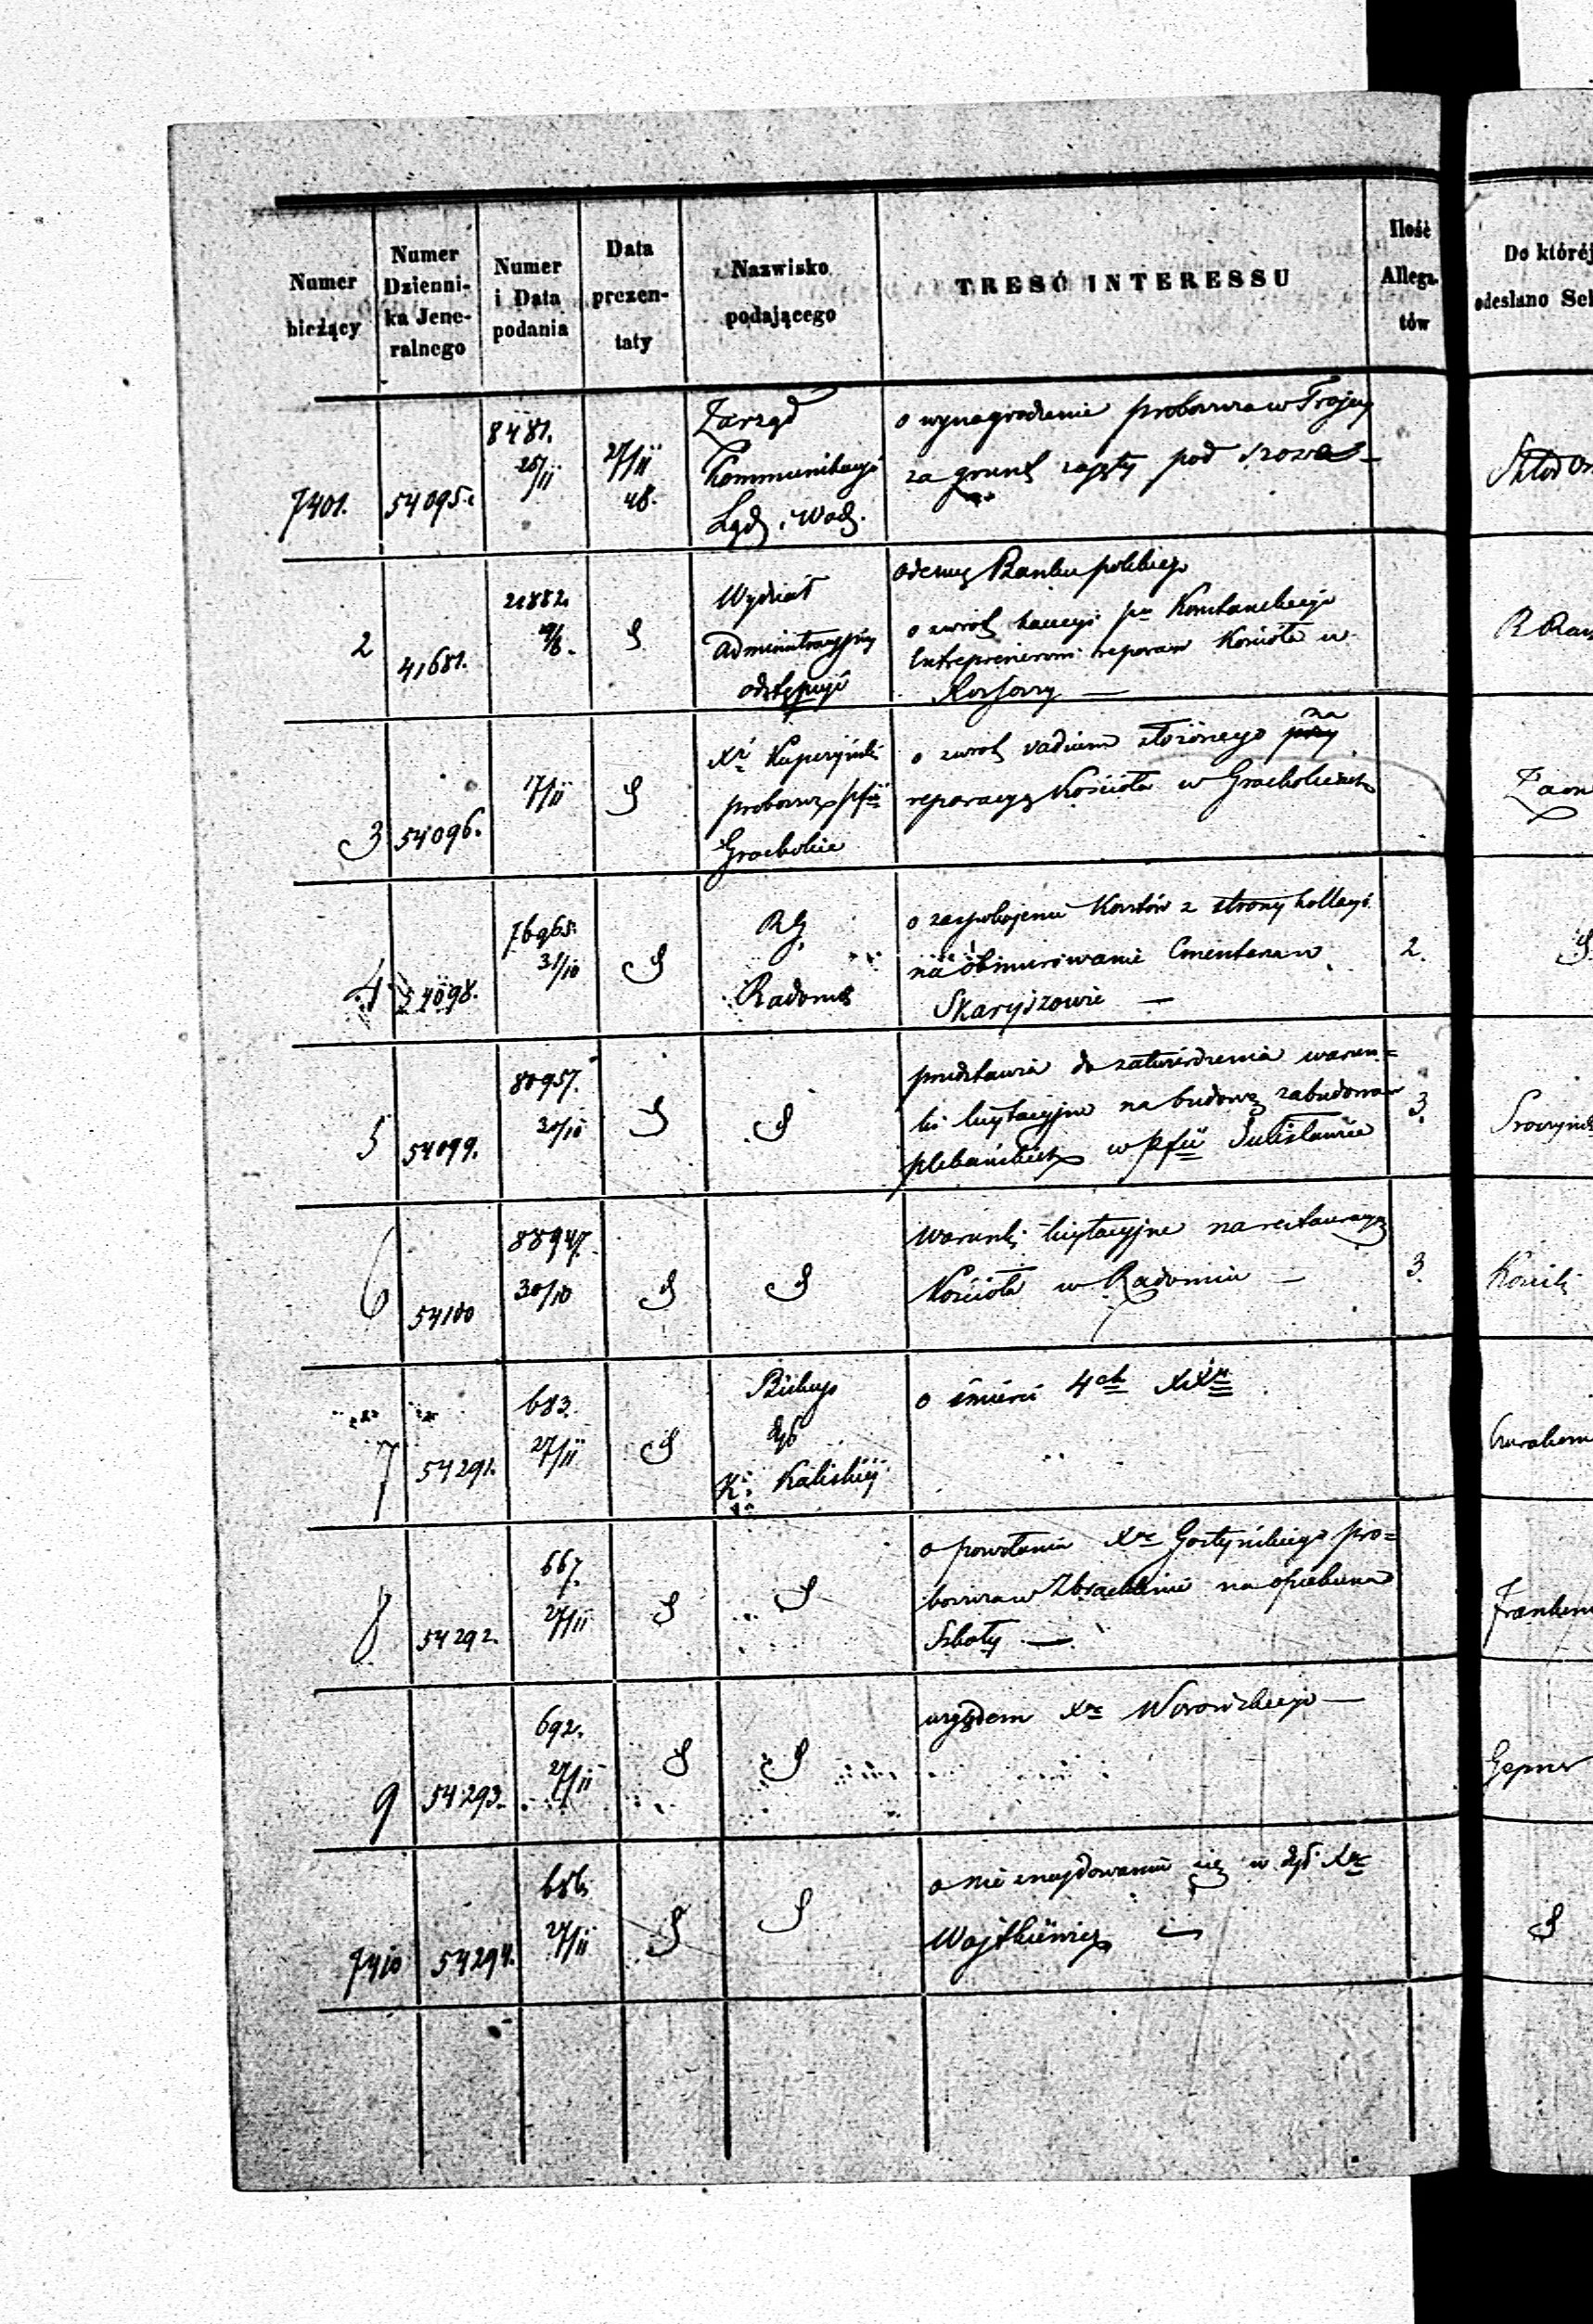 Numer bieżący
Numer Dzienni- ka Jene- ralnego
Numer i Data podania
Data prezen- taty
Nazwisko podającego
TREŚĆ INTERESSU
Ilość Allega- tów
Do któréj
odesłano
7401. 54095. 8481. 27/11 48.
Zarząd
Kommunikacyi
Ląd. i Wod.
o wynagrodzenie proboszcza w Trojcy
za grunt zajęty pod szosse
2 41681. 21882.
Wydział
Administracyjny
odstępuje
odezwę Banku polskiego
o zwrot kaucyi
Entreprenerom reparacyi Kościoła w
3 54096. 17/11 S
Xdz
proboszcz pfii
Grocholice
o zwrot vadium złożonego przy na
reparacyę Kościoła w Grocholicach
4 54098. 76968. 31/10 S
RG
Radoms
o zaspokojenie Kosztów z strony kollacyi
na obmurowanie Cmentarza w
Skaryszowie —
2.
S
5 54099. 80957. 30/10 S S
przedstawia do zatwierdzenia warun=
ki licytacyjne na budowę zabudowań
plebańskich w pfii Sulisławice
3.
6 54100 88947. 30/10 S S
warunki licytacyjne na restauracyę
Kościoła w Radomiu —
3.
7 54291. 683. 27/11 S
Biskup
dyec
K: Kaliskiej
o śmierci 4ch XX
8 54292. 667. 27/11 S S
o powołaniu Xdza Gostyńskiego pro=
boszcza w Zbrachlinie na opiekuna
Szkoły —
9 54293. 692. 27/11 S S
względem Xdza
Gepner
7410 54294. 686. 27/11 S S
o nie znajdowaniu się w dyec Xdza
Wojtkiewicz —
S